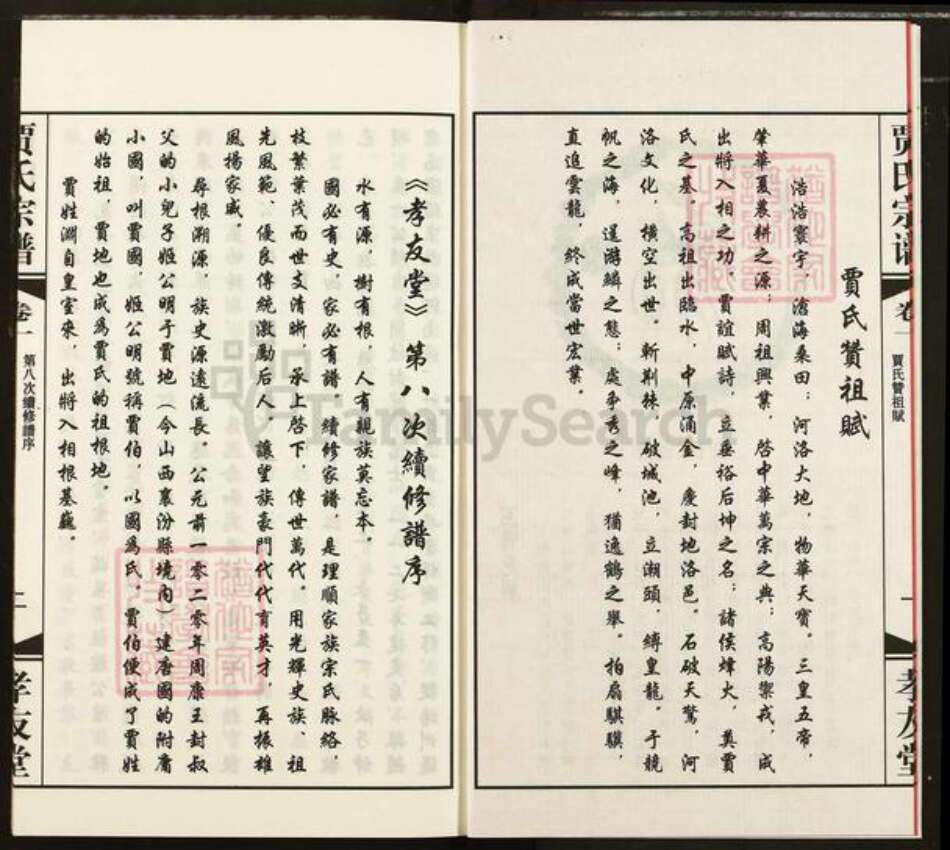 賈氏宗譜
卷一
賈氏贊祖賦
一
孝友堂
賈氏贊祖賦
浩浩寰宇，滄海桑田；河洛大地，物華天寶。三皇五帝，
肇華夏農耕之源；周祖興業，啓中華萬宗之典；高陽禦戎，成
出將入相之功，賈誼賦詩，立垂裕后坤之名；諸侯烽火，奠賈
氏之基。高祖出臨水，中原涌金，慶封地洛邑。石破天驚，河
洛文化，橫空出世，斬荆棘，破城池，立潮頭，縛皇龍。于競
帆之海，逞游鱗之態；處争秀之峰，猶逸鶴之舉。拍扇騏驥，
直追雲龍，終成當世宏業。
《孝友堂》第八次續修譜序
水有源，樹有根，人有親族莫忘本。
國必有史，家必有譜，續修家譜，是理順家族宗氏脉絡，
枝繁葉茂而世支清晰，承上啓下，傳世萬代。用光輝史族、祖
先風範、優良傳統激勵后人，讓望族豪門代代育英才，再振雄
風揚家威。
尋根溯源，族史源遠流長。公元前一零二零年周康王封叔
父的小兒子姬公明于賈地（今山西襄汾縣境内）建唐國的附庸
小國，叫賈國，姬公明號稱賈伯，以國爲氏，賈伯便成了賈姓
的始祖，賈地也成爲賈氏的祖根地。
賈姓淵自皇室來，出將入相根基巍。
賈氏宗譜
卷一
第八次續修譜序
二
孝友堂
FamilySearch